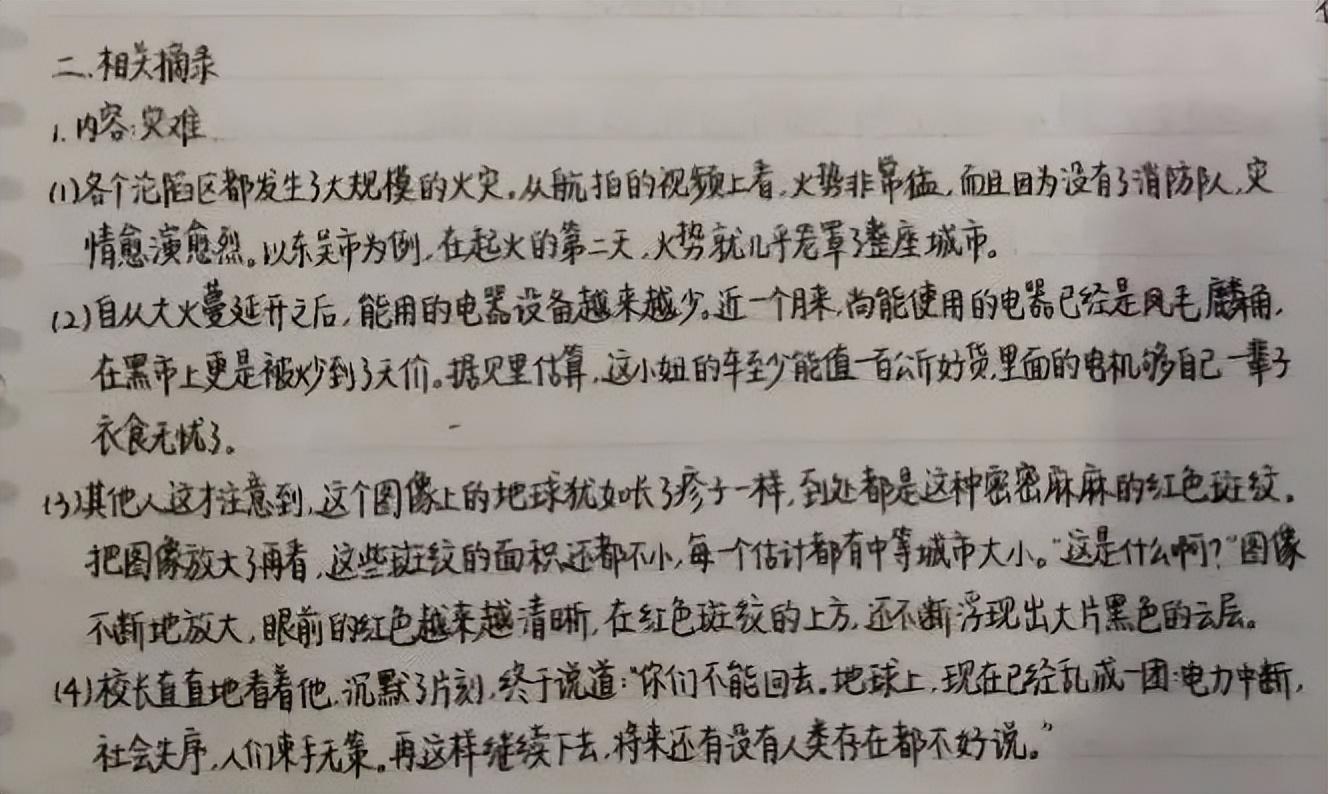 二.相关摘录
1.内容:灾难
(1)各个沦陷区都发生了大规模的火灾。从航拍的视频上看,火势非常猛,而且因为没有了消防队,灾
情愈演愈烈。以东吴市为例,在起火的第二天,火势就几乎笼罩了整座城市。
(2)自从大火蔓延开之后,能用的电器设备越来越少。近一个月来,尚能使用的电器已经是凤毛麟角,
在黑市上更是被炒到了天价。据贝里估算,这小妞的车至少能值一百公斤好货,里面的电机够自己一辈子
衣食无忧了。
(3)其他人这才注意到,这个图像上的地球犹如长了疹子一样,到处都是这种密密麻麻的红色斑纹。
把图像放大了再看,这些斑纹的面积还都不小,每一个估计都有中等城市大小。“这是什么啊?”图像
不断地放大,眼前的红色越来越清晰,在红色斑纹的上方,还不断浮现出大片黑色的云层。
(4)校长直直地看着他,沉默了片刻,终于说道:“你们不能回去。地球上,现在已经乱成一团:电力中断,
社会失序,人们束手无策。再这样继续下去,将来还有没有人类存在都不好说。”